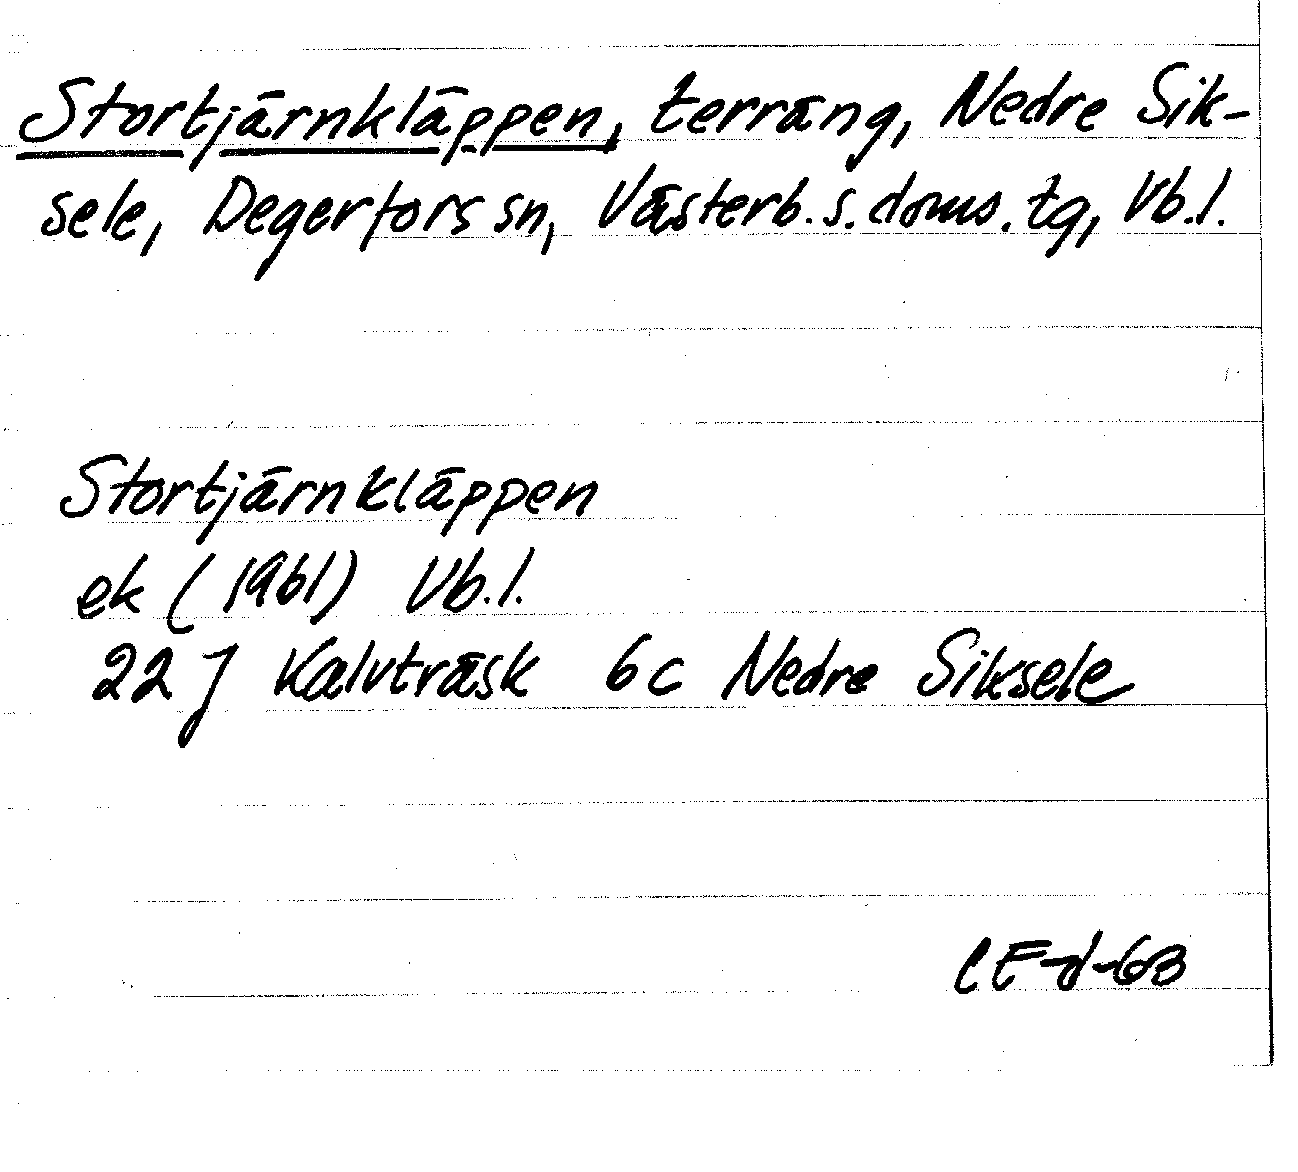 Stortjärnkläppen, terräng, Nedre Sik-
sele, Degerfors sn, Västerb. s. doms. tg, Vb. l.
Stortjärnkläppen
ek (1961) Vb. l.
22 J Kalvträsk 6c Nedre Siksele